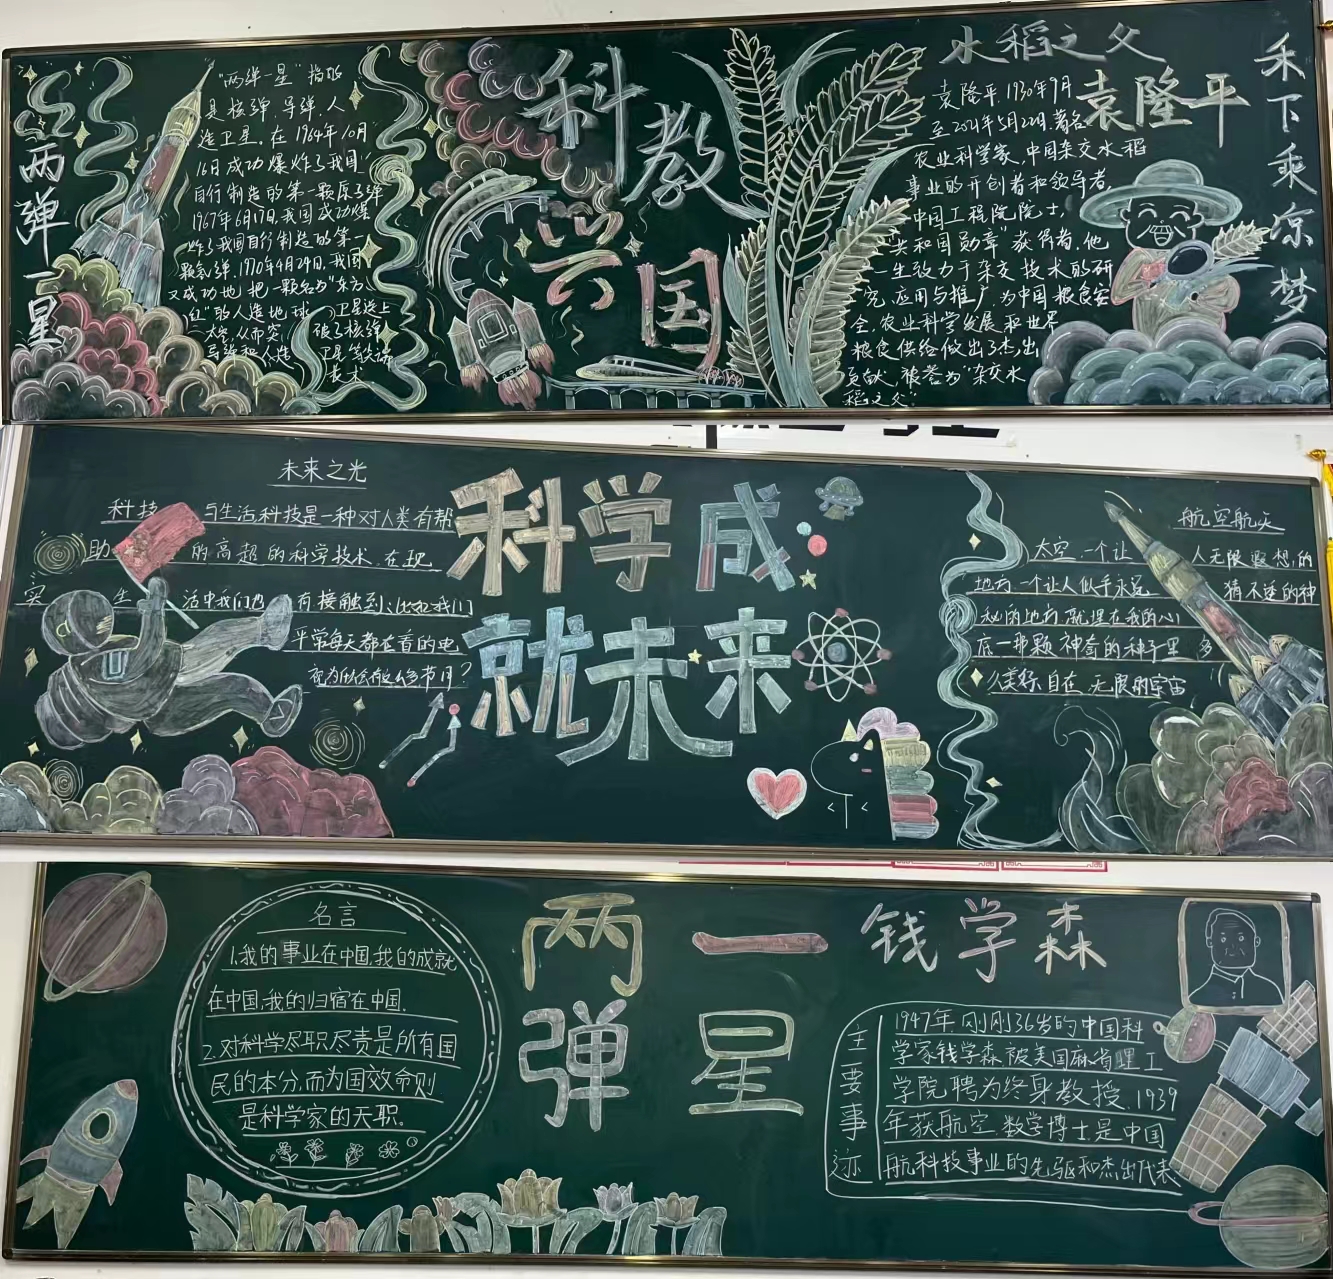 两弹一星
"两弹一星"指的
是核弹、导弹、人
造卫星。在1964年10月
16日成功爆炸了我国
自行制造的第一颗原子弹
1967年6月17日,我国成功爆
炸了我国自行制造的第一
颗氢弹.1970年4月24日,我国
又成功地把一颗名为"东方
红"的人造地球 卫星送上
太空,从而突 破了核弹
导弹和人造 卫星等尖端
技术
科教
兴国
水稻之父
袁隆平
袁隆平,1930年9月
至2021年5月22日,著名
农业科学家,中国杂交水稻
事业的开创者和领导者,
中国工程院院士,
"共和国勋章"获得者,他
一生致力于杂交技术的研
究,应用与推广,为中国粮食安
全、农业科学发展和世界
粮食供给做出了杰出
贡献,被誉为"杂交水
稻之父"
禾下乘凉梦
未来之光
科技 与生活科技是一种对人类有帮
助 的高超的科学技术.在现
实 生 活中我们 有接触到:比如我们
平常每天都在看的电
视为什么会有这么多节目?
科学成
就未来
航空航天
太空,一个让 人无限遐想的
地方 一个让人似乎永远 猜不透的神
秘的地方,就埋在我的心
底一那颗神奇的种子里 多
么美好 自在 无限的宇宙
名言
1.我的事业在中国,我的成就
在中国,我的归宿在中国.
2.对科学尽职尽责是所有国
民的本分,而为国效命则
是科学家的天职。
两一
弹星
钱学森
主要事迹
1947年,刚刚36岁的中国科
学家钱学森被美国麻省理工
学院聘为终身教授.1939
年获航空、数学博士,是中国
航科技事业的先驱和杰出代表